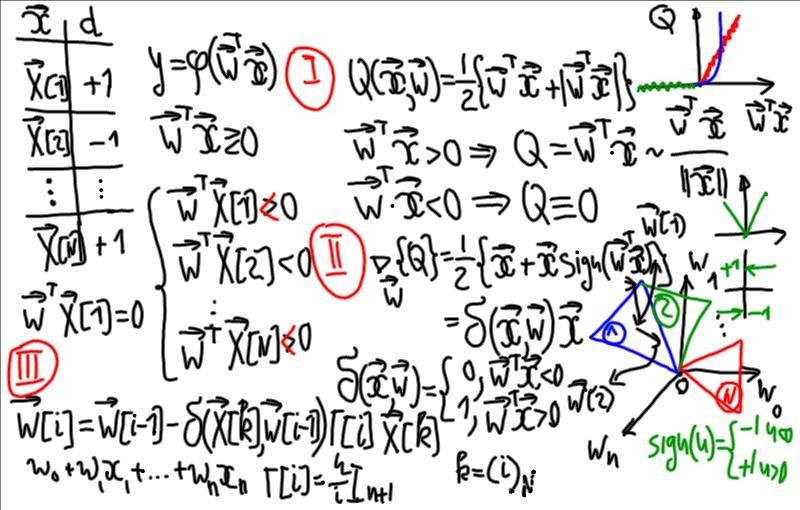 x⃗ d
X⃗[1] +1
X⃗[2] -1
⋮ ⋮
X⃗[N] +1
y=φ(w⃗ᵀx⃗)
w⃗ᵀx⃗≷0
w⃗ᵀX⃗[1]<0
w⃗ᵀX⃗[2]<0
⋮
w⃗ᵀX⃗[N]<0
w⃗ᵀX⃗[1]=0
I
Q(x⃗,w⃗)=1/2{w⃗ᵀx⃗+|w⃗ᵀx⃗|}
w⃗ᵀx⃗>0 ⇒ Q=w⃗ᵀx⃗ ~ w⃗ᵀx⃗/||x⃗||
w⃗ᵀx⃗<0 ⇒ Q=0
Q
w⃗ᵀx⃗
II
∇w⃗{Q}=1/2{x⃗+x⃗sign(w⃗ᵀx⃗)}
=δ(x⃗,w⃗)x⃗
δ(x⃗,w⃗)={0, w⃗ᵀx⃗<0
1, w⃗ᵀx⃗>0
III
w⃗[i]=w⃗[i-1]-δ(X⃗[k],w⃗[i-1])Γ[i]X⃗[k]
w₀+w₁x₁+...+wₙxₙ Γ[i]=η/i Iₙ₊₁ k=(i)_N
w⃗(1)
w₁
+1
-1
1
2
⋮
N
0
w₀
w⃗(2)
wₙ
sign(u)={-1 u<0
+1 u>0